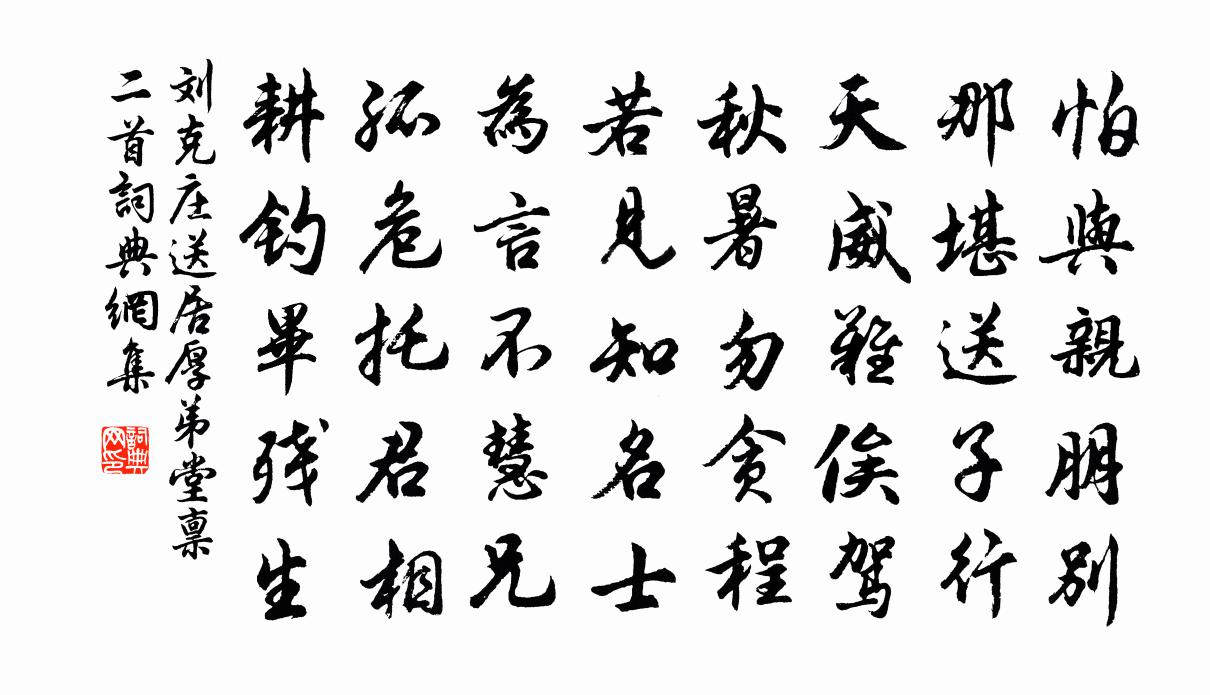 怕與親朋别
那堪送子行
天威難俟駕
秋暑勿貪程
若見知名士
為言不慧兄
孤危托君相
耕钓畢残生
刘克庄送居厚弟堂禀
二首詞典網集
詞典网印